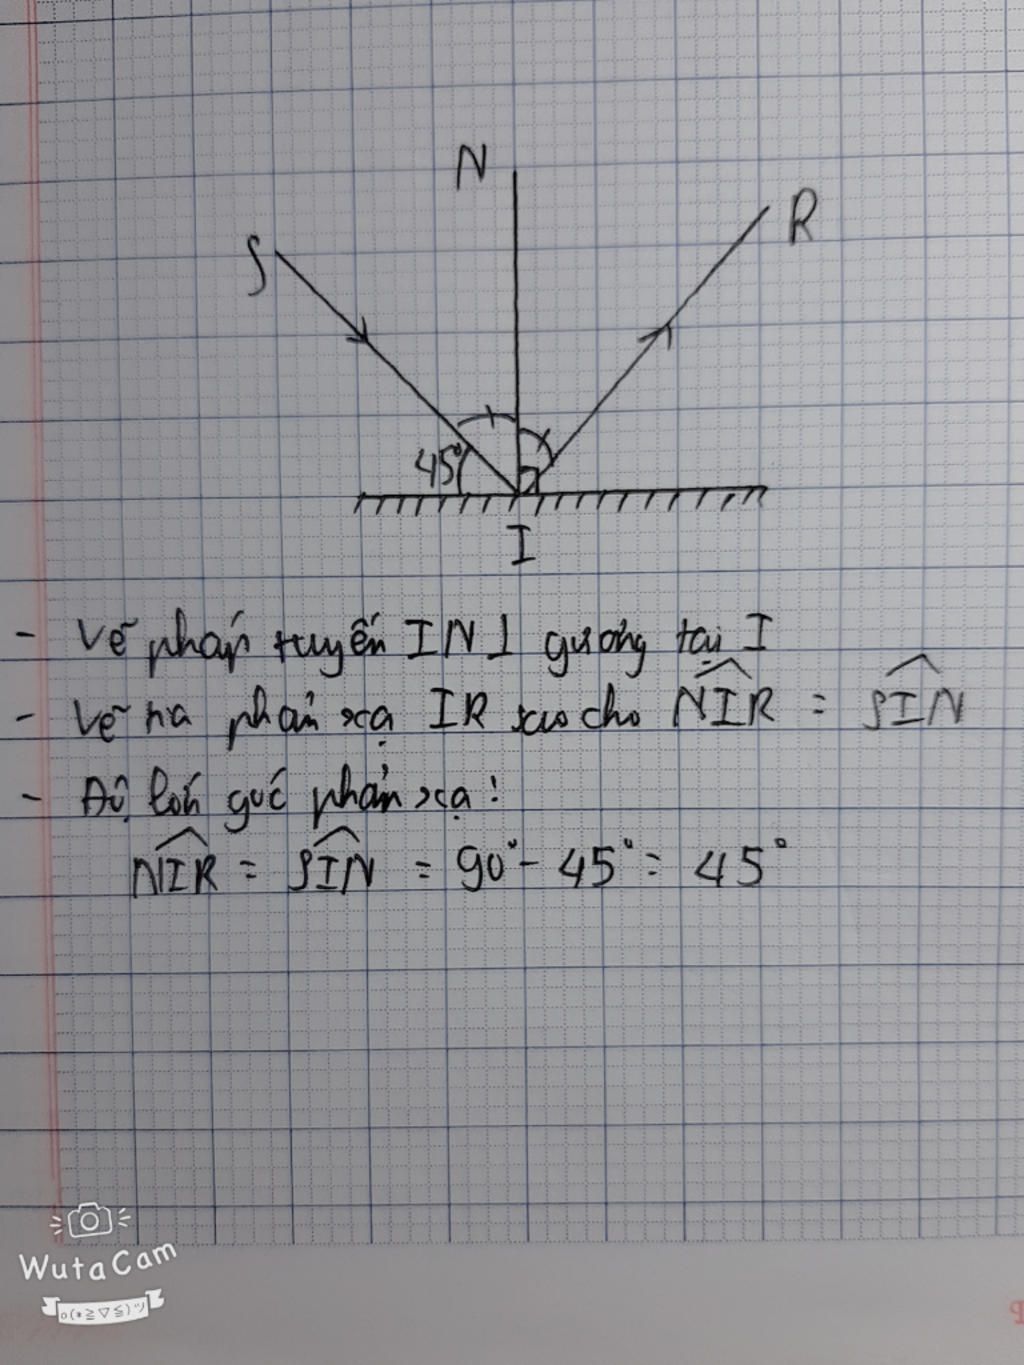 N
R
S
45°
I
- Vẽ pháp tuyến IN ⊥ gương tại I
- Vẽ tia phản xạ IR sao cho \widehat{NIR} = \widehat{SIN}
- Độ lớn góc phản xạ:
\widehat{NIR} = \widehat{SIN} = 90° - 45° = 45°
WutaCam
o(*≧▽≦)ツ